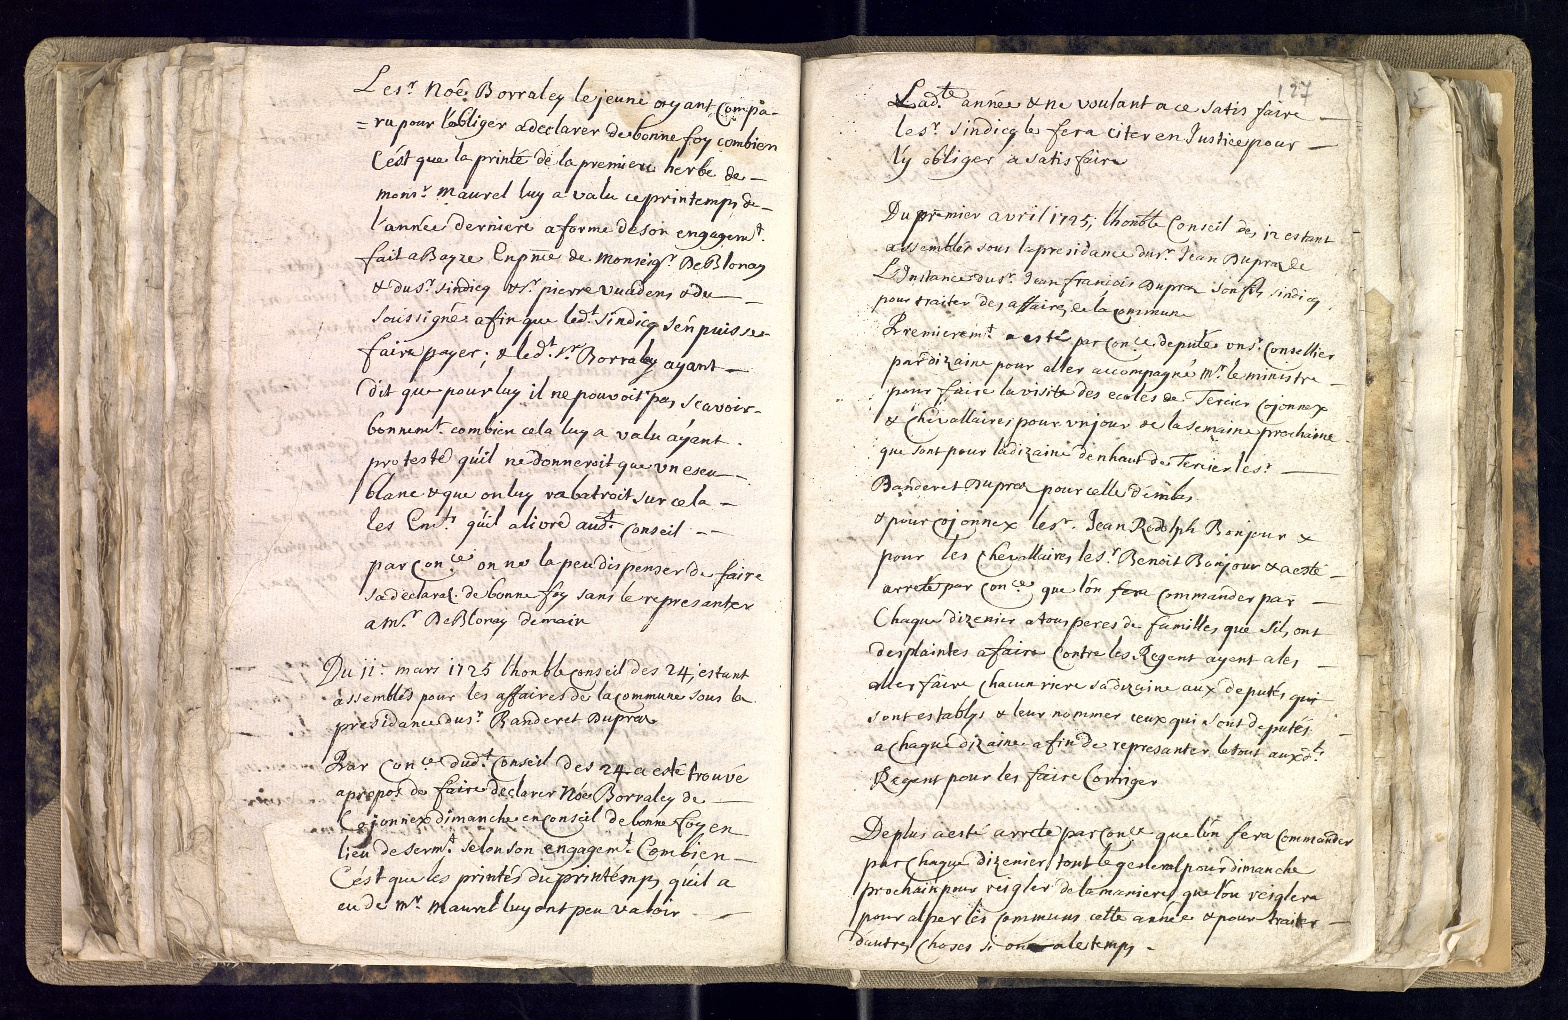 Le sr. Noé Borraley le jeune ayant compa-
=ru pour l'obliger a declarer de bonne foy combien
C'est que la printé de la premiere herbe de
monsr. Maurel luy a valu ce printemps de
l'année derniere a forme de son engagemt.
fait a Bayze En pnce de Monseigr. De Blonay
& du sr. sindicq & sr. pierre vuadens & du
soussigné afin que ledt. sindicq s'en puisse
faire payer; & ledt. sr. Borraley ayant
dit que pour luy il ne pouvoit pas scavoir
bonnemt. combien cela luy a valu ayant
protesté qu'il ne donneroit que un escu
blanc & que on luy rabatroit sur cela
les qu'il a livré audt. Conseil
par conce. on ne la peu dispenser de faire
sa declaraõ. de bonne foy sans le represanter
a mr. De Blonay demain
Du 11e. mars 1725 l'honble conseil des 24, estant
assemblés pour les affaires de la commune sous la
presidance du sr. Banderet Dupraz
Par conce. dudt. Conseil des 24 a esté trouvé
a propos de faire declarer Noé Borraley de
Cojonnex dimanche en conseil de bonne foy en
lieu de sermt. selon son engagemt. Combien
C'est que les printés du printemps qu'il a
eu de mr. Maurel luy ont peu valoir
127
Ladte. année & ne voulant a ce satisfaire
le sr. sindicq le fera citer en Justice pour
l'y obliger a satisfaire
Du premier avril 1725, l'honble Conseil des 12 estant
assemblés sous la presidance du sr. Jean Dupraz de
L'Instance du sr. Jean françois Dupraz son fils sindicq
pour traiter des affaires de la commune
Premieremt. a esté par conce. deputé un sr. Conseiller
par dizaine pour aller accompagné mr. le ministre
pour faire la visite des ecoles de Tercier Cojonnex
& Chevallaires pour un jour de la semaine prochaine
que sont pour la dizaine d'enhaut de Tercier le sr.
Banderet Dupraz pour celle d'embas
& pour cojonnex le sr. Jean Rodolph Bonjour &
pour les chevallaires le sr. Benoit Bonjour & a esté
arreté par conce. que l'on fera commander par
Chaque dizenier a tous peres de familles que s'ils ont
des plaintes a faire Contre les Regent ayent a les
aller faire chacun riere sa dizaine aux deputés qui
sont establys & leur nommer ceux qui sont deputés
a chaque dizaine afin de represanter le tout auxdts.
Regent pour les faire Corriger
De plus a esté arreté par conce. que l'on fera commander
par chaque dizenier tout le general pour dimanche
prochain pour reigler de la maniere que l'on reiglera
pour alper les communs cette année & pour traiter
d'autres choses si on a le temps